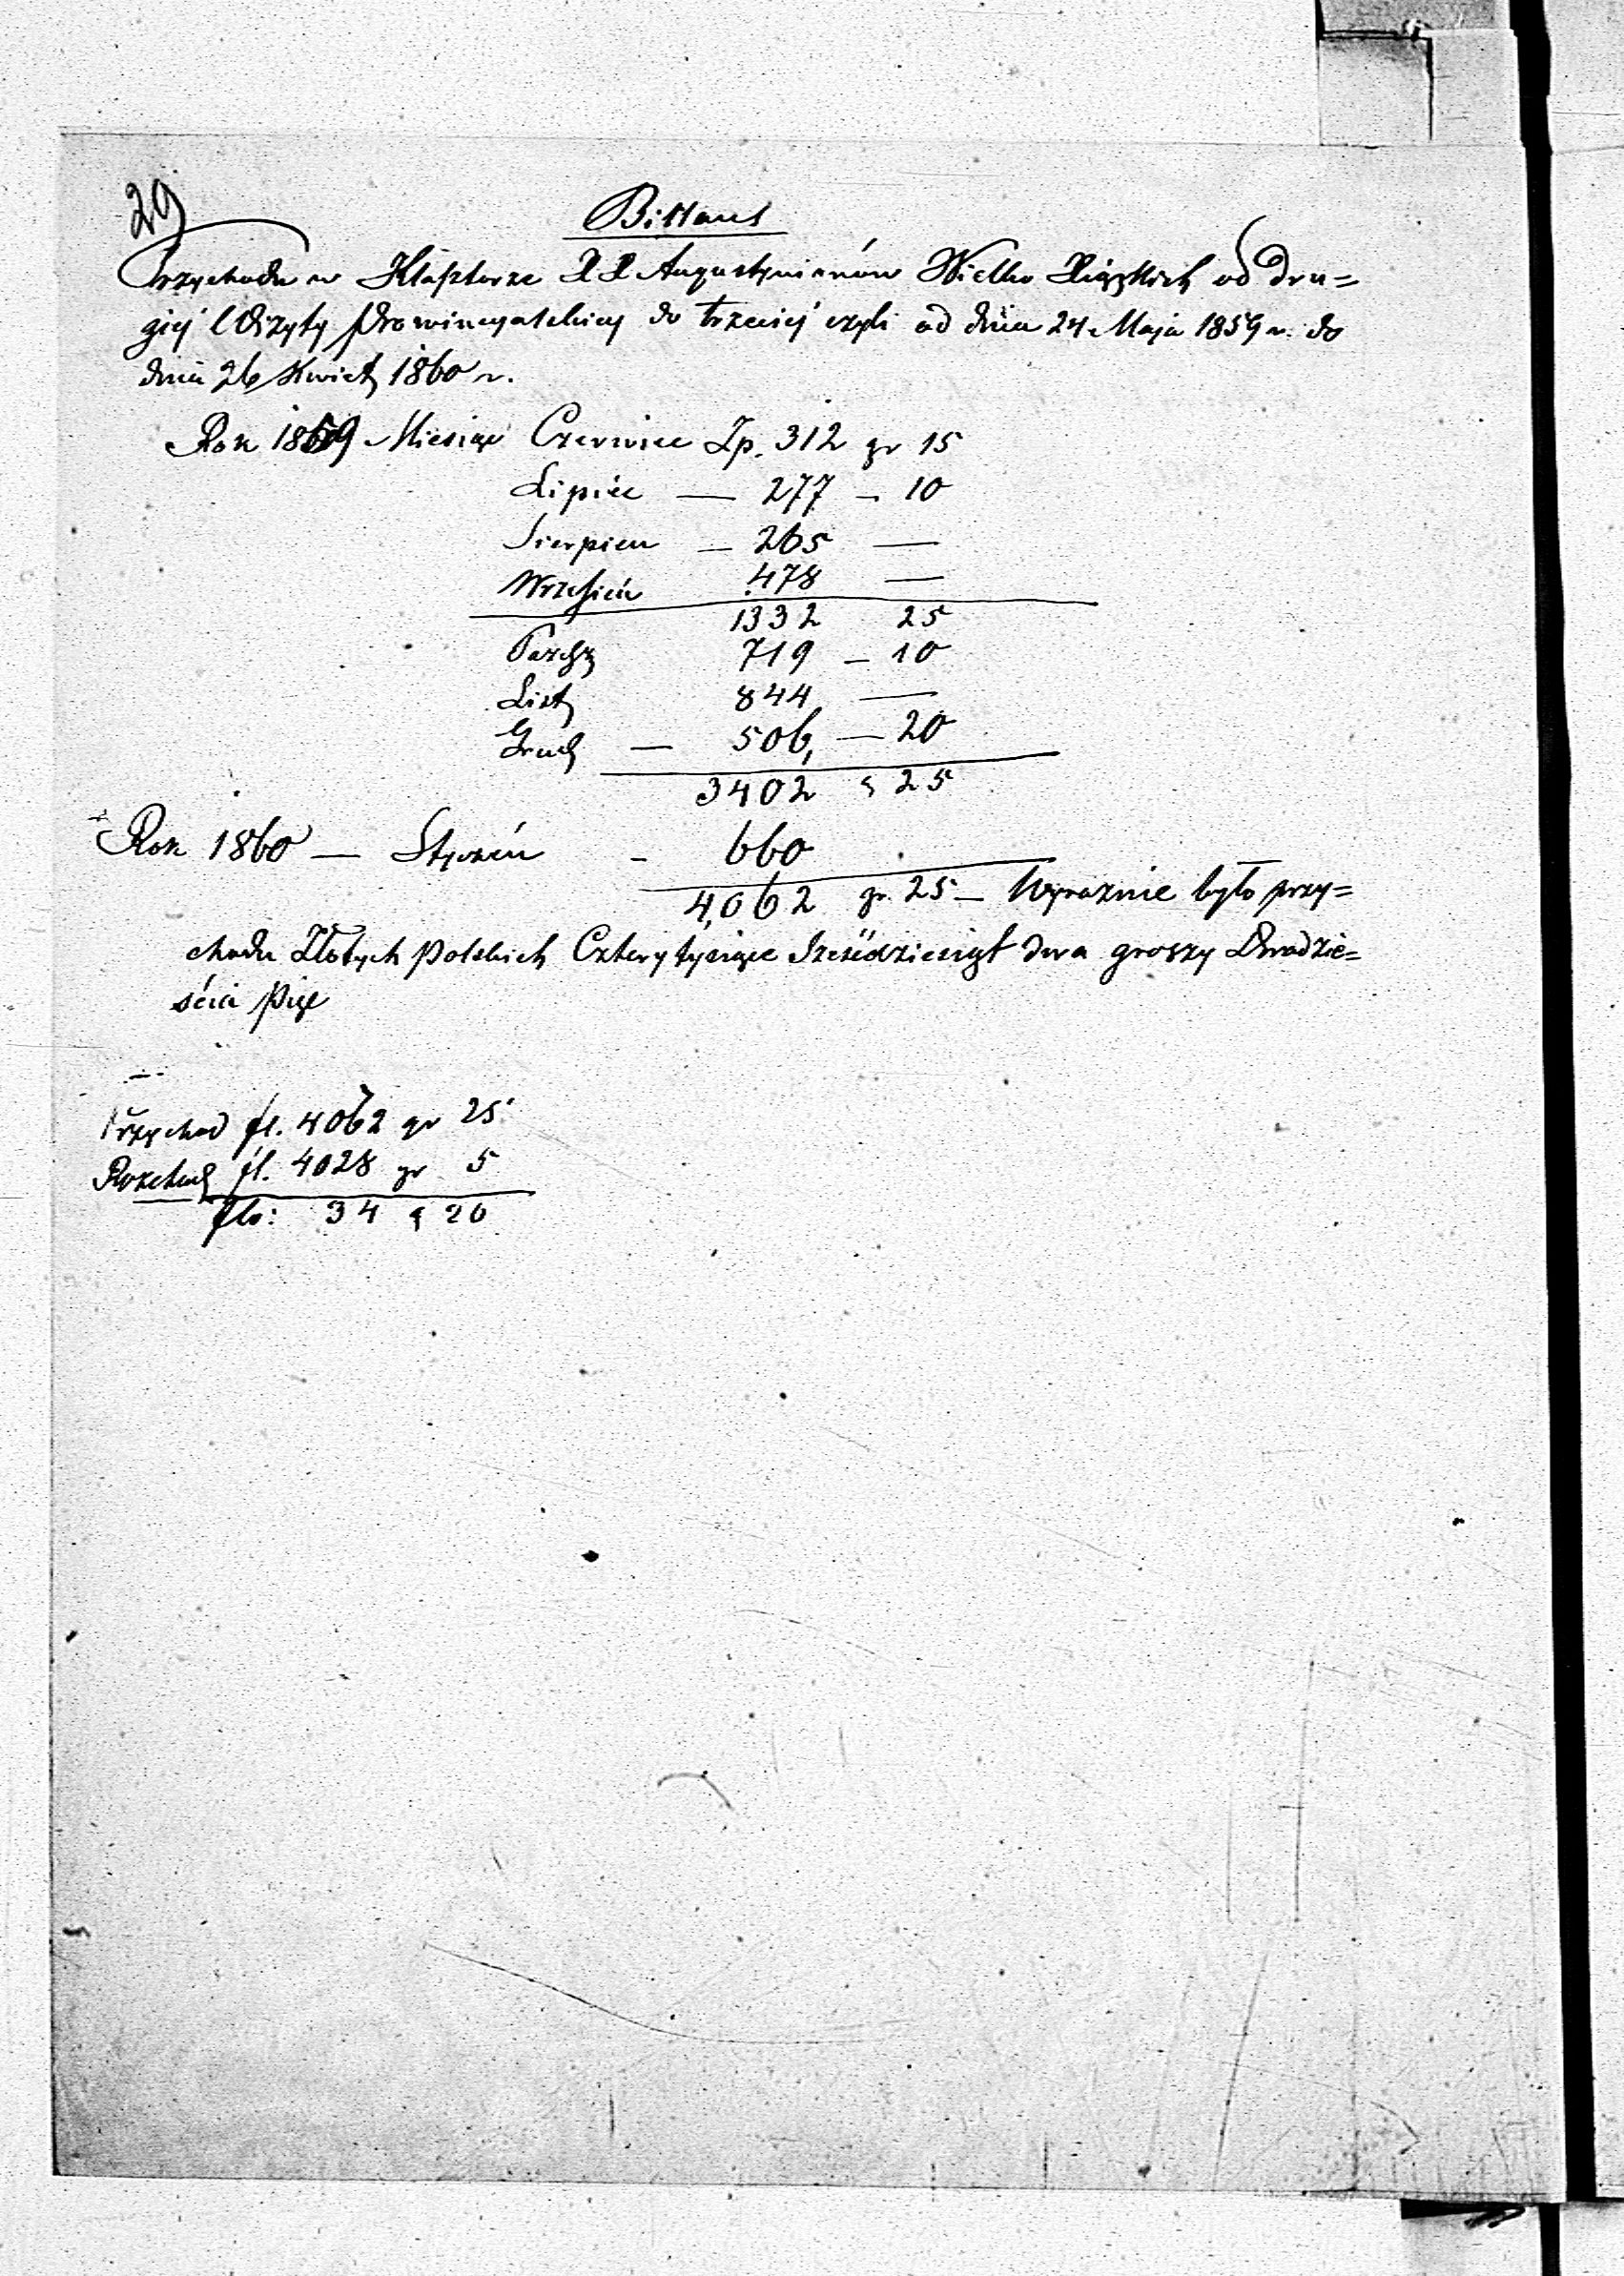 29
Billans
Przychodu w Klasztorze XX Augustynianów Wielko Xiązkich od dru=
giej Wizyty Prowincyalskiej do trzeciej czyli od dnia 24 Maja 1859 r. do
dnia 26 Kwiet 1860 r.
Rok 1859 Miesiąc Czerwiec Zp. 312 gr 15
Lipiec — 277 — 10
Sierpien — 265 —
Wrzesień 478 —
1332 25
Pazdz 719 — 10
List 844 —
Grud — 506, — 20
3402 g 25
Rok 1860 — Styczeń - 660
4,062 gr. 25 — Wyraznie było przy=
chodu Złotych Polskich Cztery tysiące Sześćdziesiąt dwa groszy Dwadzie=
ścia Pięć
Przychod fl. 4062 gr 25
Rozchod fl. 4028 gr 5
flo: 34 g 20